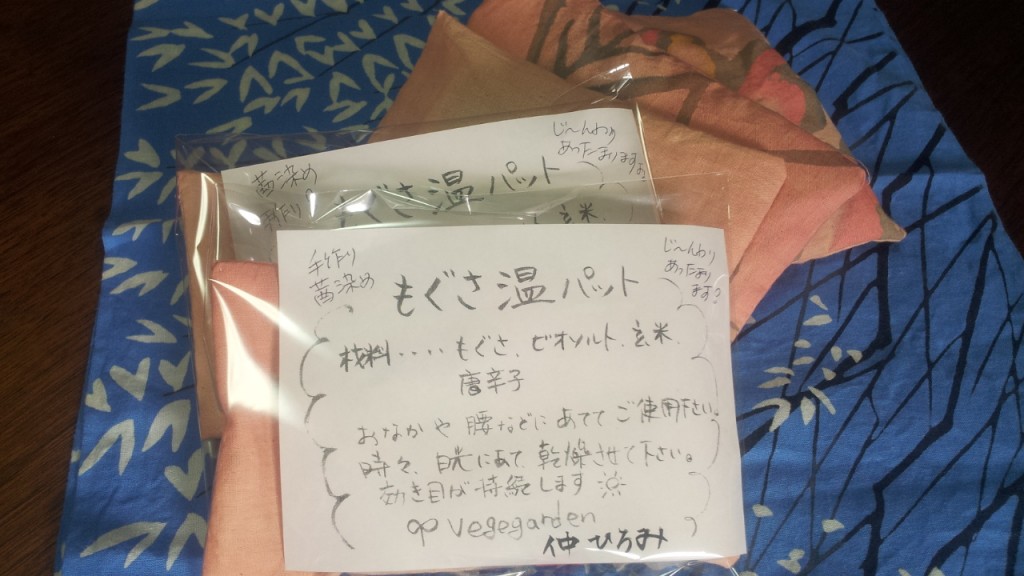 茜染め
手作り
もぐさ温パット
じ〜んわり
あったまります
玄米、
手作り
茜染め
もぐさ温パット
じ〜んわり
あったまり
ます♡
材料・・・・もぐさ、ビオソルト、玄米、
唐辛子
おなかや腰などにあててご使用下さい。
時々、日光にあて、乾燥させて下さい。
効き目が持続します
vegegarden
仲ひろみ